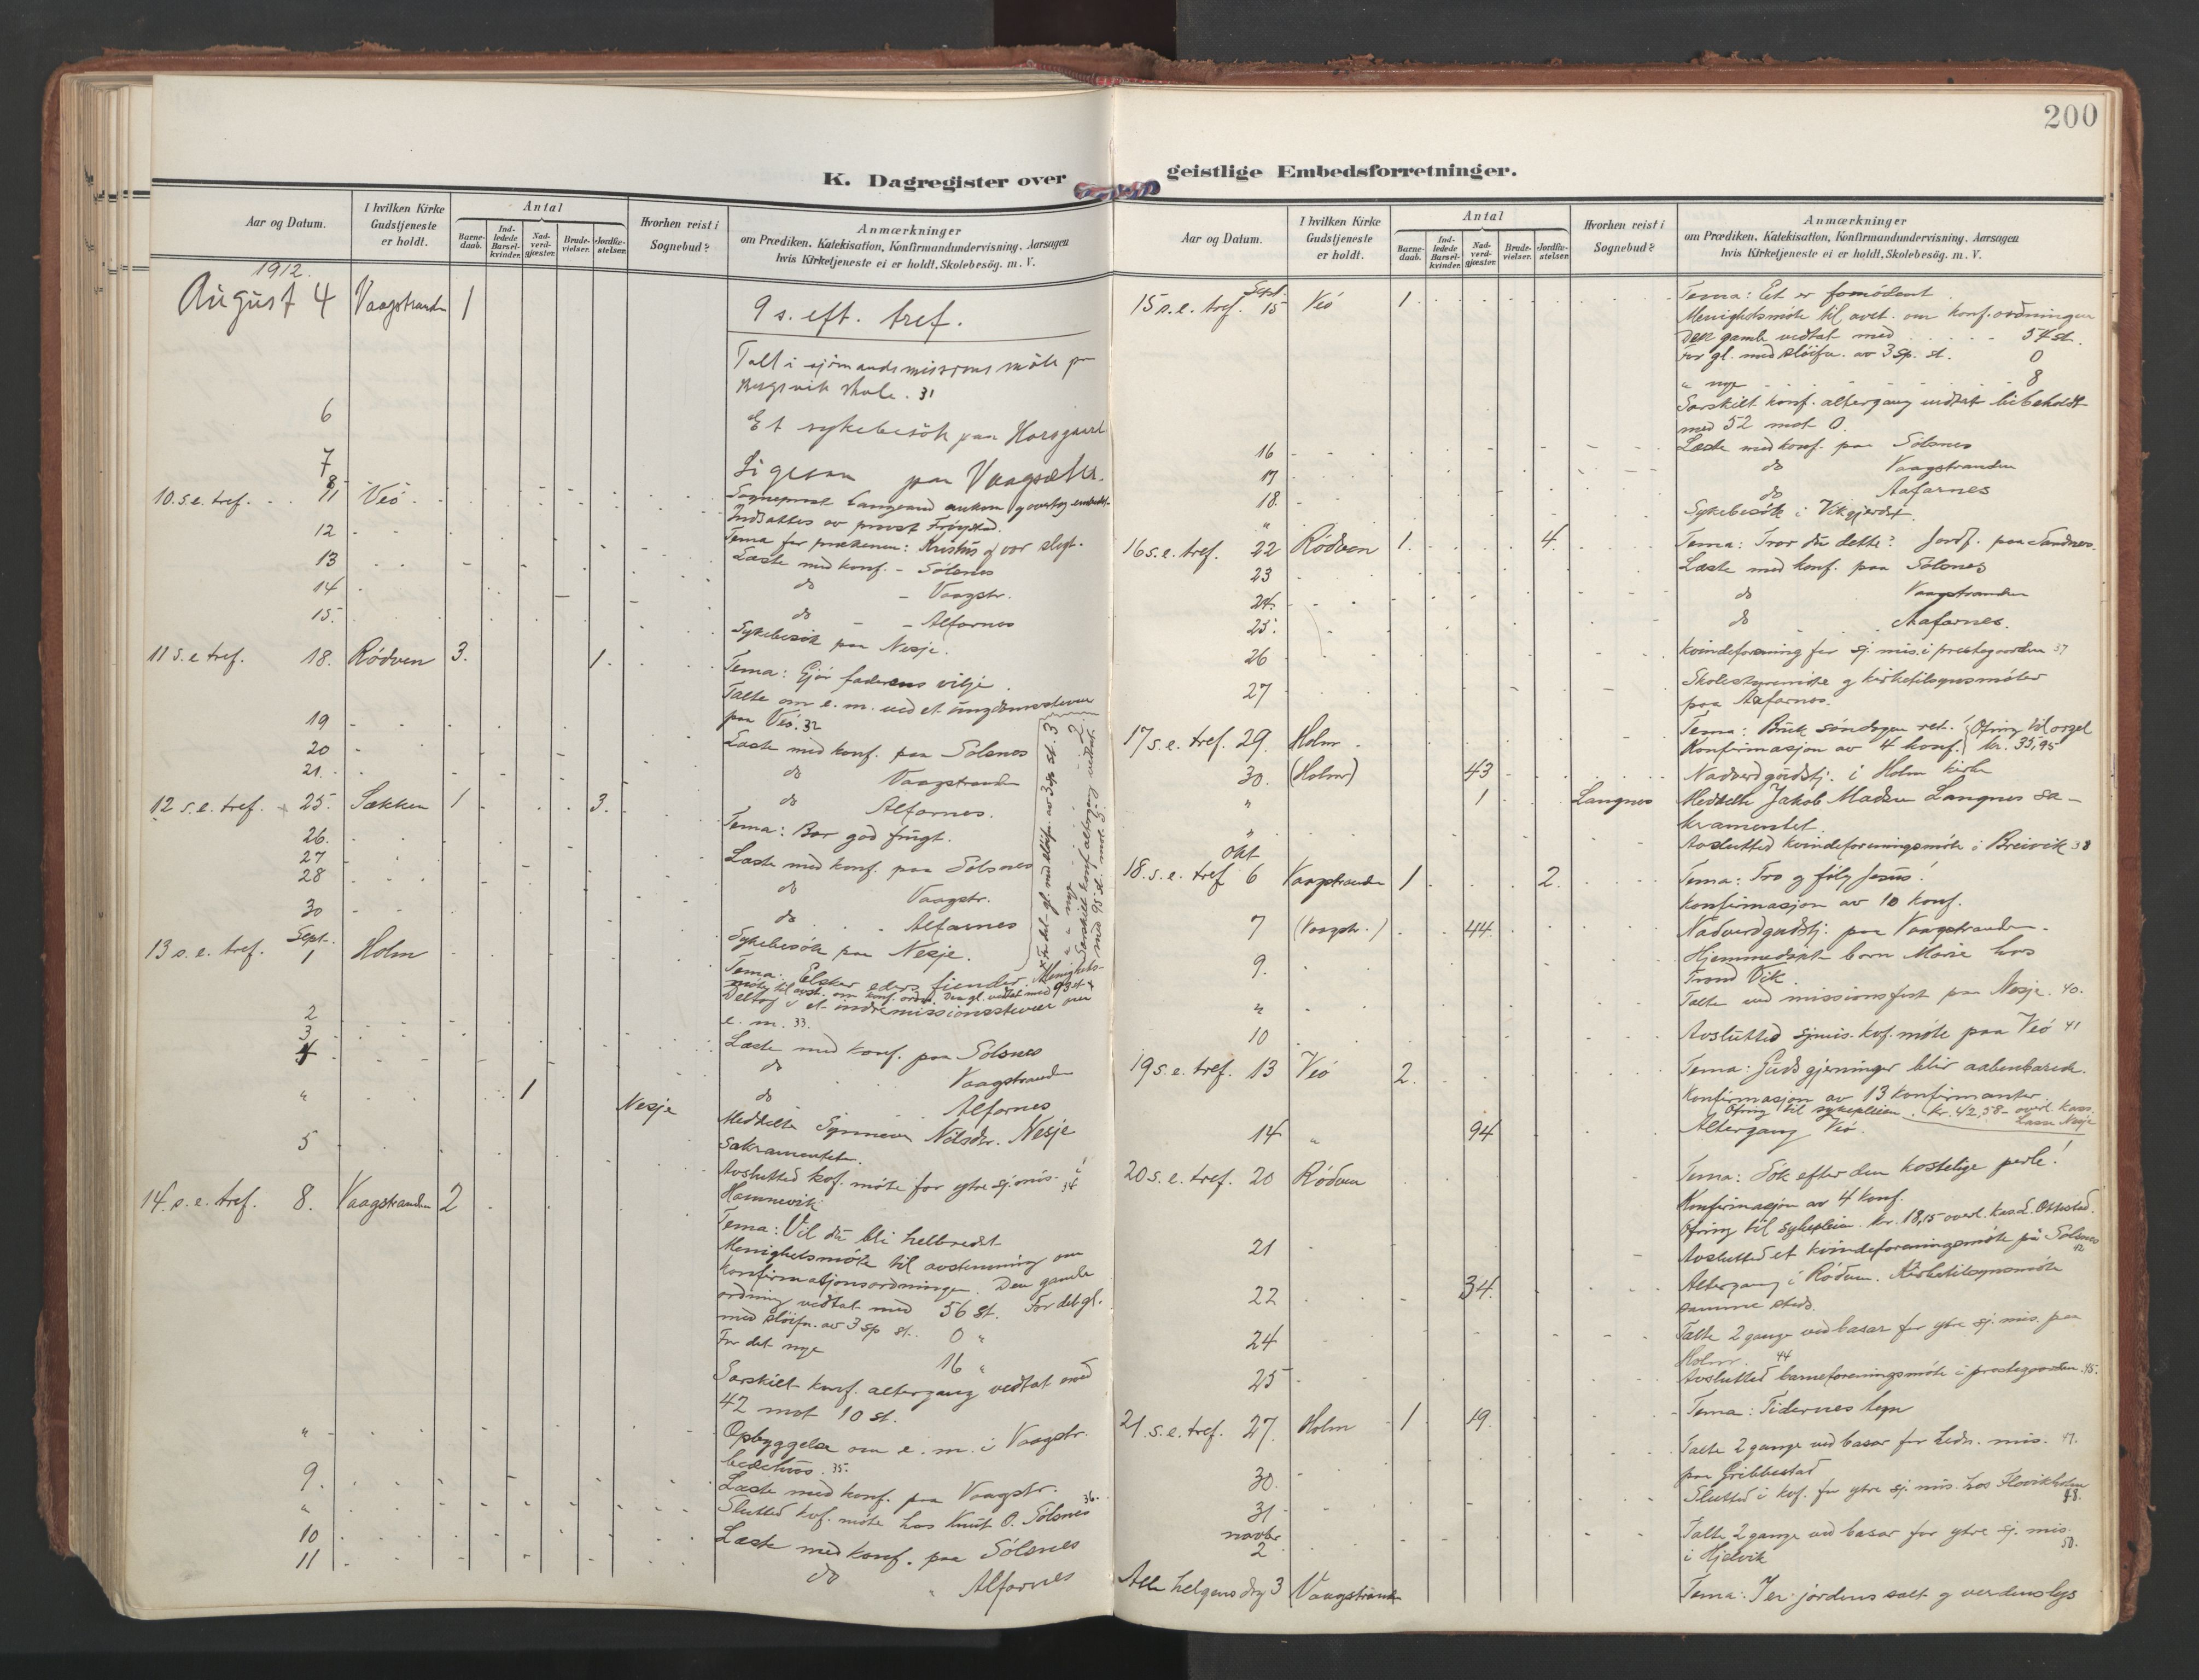 200
K. Dagregister over geistlige Embedsforretninger.
Aar og Datum.
I hvilken Kirke Gudstjeneste er holdt.
Antal
Barne-daab.
Ind-ledede Barsel-kvinder.
Nad-verd-gjæster.
Brude-vielser.
Jordfæ-stelser.
Hvorhen reist i Sognebud?
Anmærkninger
om Prædiken, Katekisation, Konfirmandundervisning, Aarsagen
hvis Kirketjeneste ei er holdt, Skolebesög. m. V.
1912.
August 4 Vaagstranden 1 9 s. eft. tref.
Talt i sjömandsmissions möte paa
skole. 31
6 Et sykebesök paa Horsgaard
7 Ligesaa paa Vaagsæter.
8
10. s. e. tref. 11 Veö Sogneprest ankom og overtog embedet.
Indsattes av provst Fröystad.
Tema for prækenen: Kristus og vor slegt.
12 Læste med konf. - Sölsnes
13 do - Vaagstr.
14 do - Alfarnes
15. Sykebesök paa Nesje.
11 s. e. tref. 18. Rödven 3. 1. Tema: Gjör faderens vilje.
Talte om e. m. ved et ungdomsstevne
paa Veö. 32
19 Læste med konf. paa Solsnes
20 do Vaagstranden
21. do Alfarnes.
12 s. e. tref. 25. Sækken 1 3. Tema: Bær god frugt.
26. Læste med konf. paa Sölsnes
27 do Vaagstr.
28 do Alfarnes
30 Sykebesök paa Nesje.
13 s. e. tref. Sept. 1 Holm Tema: Elsker eders fiender. Menighets-
möte til avst. om konf. ordn. Den gl. vedtat med 93 st. x
Deltog i et indremissionsstevne om
e. m. 33.
x For det gl. med slöifn. av 3 sp. st. 3
" " nye 2
Særskilt konf. altergang vedtat
med 95 st. mot 3.
2 Læste med konf. paa Solsnes
3 do Vaagstranden
4 do Alfarnes
" 1 Nesje Meddelte Synneva Nilsdr. Nesje
sakramentet.
5 Avsluttet kvf. möte for ytre sj. mis. i
Hamnevik 34
14. s. e. tref. 8. Vaagstranden 2 Tema: Vil du bli helbredet
Menighetsmöte til avstemning om
konfirmasjonsordningen. Den gamle
ordning vedtat med 56 st. For det gl.
med slöifn. av 3 sp st. 0 "
For det nye 16 "
Særskilt konf. altergang vedtat med
42 mot 10 st.
" Opbyggelse om e. m. i Vaagstr.
bedehus. 35.
9. Læste med konf. paa Vaagstr.
" Sluttet kvf. möte hos Knut O. Sölsnes 36.
10 Læste med konf. paa Sölsnes
11 do " Alfarnes
K. Dagregister over geistlige Embedsforretninger.
Aar og Datum.
I hvilken Kirke Gudstjeneste er holdt.
Antal
Barne-daab.
Ind-ledede Barsel-kvinder.
Nad-verd-gjæster.
Brude-vielser.
Jordfæ-stelser.
Hvorhen reist i Sognebud?
Anmærkninger
om Prædiken, Katekisation, Konfirmandundervisning, Aarsagen
hvis Kirketjeneste ei er holdt, Skolebesög. m. V.
15 s. e. tref. Sept. 15 Veö 1. Tema: Eet er fornödent.
Menighetsmöte til avst. om konf. ordningen
Den gamle vedtat med 54 st.
For gl. med slöifn. av 3 sp. st. 0
" nye 8
Særskilt konf. altergang vedtat bibeholdt
med 52 mot 0.
16 Læste med konf. paa Sölsnes
17 do Vaagstranden
18. do Aafarnes
" Sykebesök i Vikgjerdet.
16 s. e. tref. 22 Rödven 1. 4. Tema: Tror du dette? Jordf. paa Sandnes.
23 Læste med konf. paa Sölsnes
24. do Vaagstranden
25. do Aafarnes.
26 Kvindeforening for sj. mis. i prestegaarden 37
27 Skolestyremöte og kirketilsynsmöter
paa Aafarnes.
17 s. e. tref. 29. Holm Tema: Bruk söndagen ret! Ofring til orgel
Konfirmasjon av 4 konf. kr. 35,95
30. (Holm) 43 Nadverdgudstj. i Holm kirke
" 1 Langnes Meddelte Jakob Madsen Langnes sa-
kramentet.
" Avsluttet kvindeforeningsmöte i Breivik 38
18. s. e. tref. Okt 6 Vaagstranden 1 2. Tema: Tro og fölg Jesus!
Konfirmasjon av 10 konf.
7 (Vaagstr.) 44 Nadverdgudstj. paa Vaagstranden.
9. Hjemmedöpt barn Marie hos
Trond Vik.
" Talte ved missionsfest paa Nesje. 40.
10 Avsluttet sjmis. kvf. möte paa Veö 41
19 s. e. tref. 13 Veö 2. Tema: Guds gjerninger blir aabenbarede.
Konfirmasjon av 13 konfirmanter.
Ofring til sykepleien. kr. 42,58 - overl. kass.
Lasse Nesje
14 " 94 Altergang Veö.
20 s. e. tref. 20 Rödven Tema: Sök efter den kostelige perle!
Konfirmasjon av 4 konf.
Ofring til sykepleien. kr. 18,15 overl.
21 Avsluttet et kvindeforeningsmöte på Sölsnes 42
22 34. Altergang i Rödven. Kirketilsynsmöte
samme steds.
24 Talte 2 gange ved basar for ytre sj. mis. paa
Holm. 44
25 Avsluttet barneforeningsmöte i prestegaarden. 45.
21. s. e. tref. 27. Holm 1 19. Tema: Tidernes tegn
30. Talte 2 gange ved basar for hedn. mis. 47.
paa Gribbestad
31 Sluttet i kvf. for ytre sj. mis. hos Flovikholm 48.
novbr. 2 Talte 2 gange ved basar for ytre sj. mis.
i Hjelvik 50.
Alle helgens dag 3 Vaagstranden Tema: I er jordens salt og verdens lys